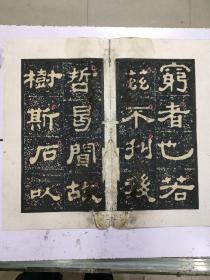 窮者也若
茲不刊後
哲曷聞故
樹斯石以